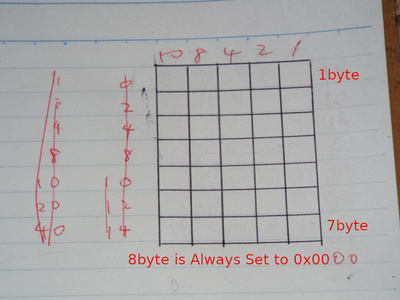 10 8 4 2 1
1byte
1 0
2 2
4 4
8 8
10 10
20 12
40 14
7byte
8byte is Always Set to 0x00 00